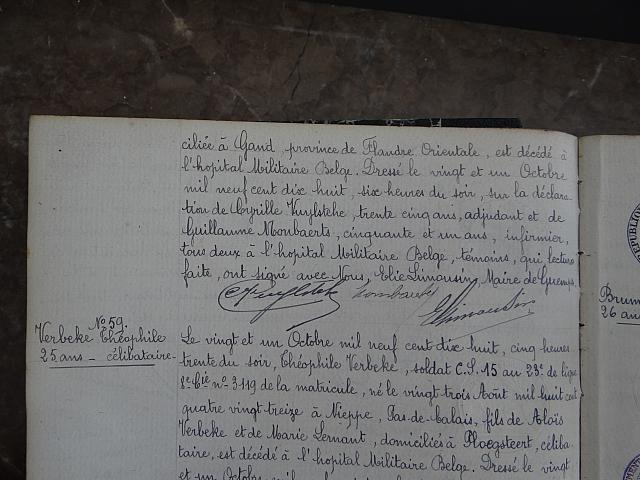 ciliée à Gand, province de Flandre Orientale, est décédé à
l'hopital Militaire Belge. Dressé le vingt et un Octobre
mil neuf cent dix huit, six heures du soir, sur la déclara-
tion de Cyrille Kuylstehe, trente cinq ans, adjudant et de
Guillaume Monbaerts, cinquante et un ans, infirmier,
tous deux à l'hopital Militaire Belge, témoins, qui lecture
faite, ont signé avec Nous, Elie Limousin, Maire de Guemps
Limousin
No 59.
Verbeke Théophile
25 ans - célibataire -
Le vingt et un Octobre mil neuf cent dix huit, cinq heures
trente du soir, Théophile Verbeke, soldat C.S. 15 au 23e de ligne
no 3119 de la matricule, né le vingt trois Août mil huit cent
quatre vingt-treize à Nieppe, Pas-de-Calais, fils de Aloïs
Verbeke et de Marie Lernant, domiciliés à Ploegsteert, céliba-
taire, est décédé à l'hopital Militaire Belge. Dressé le vingt
et un Octobre
Brum
26 ans